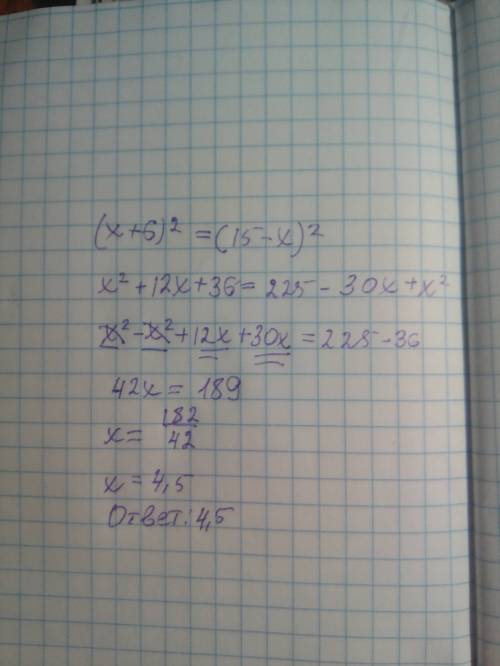 (x+6)² = (15-x)²
x² + 12x + 36 = 225 - 30x + x²
x² - x² + 12x + 30x = 225 - 36
42x = 189
x = 182/42
x = 4,5
Ответ: 4,5